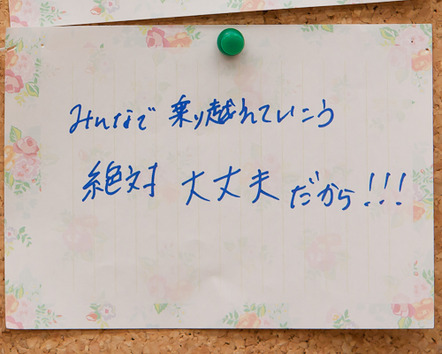 みんなで 乗り越れていこう
絶対 大丈夫だから!!!